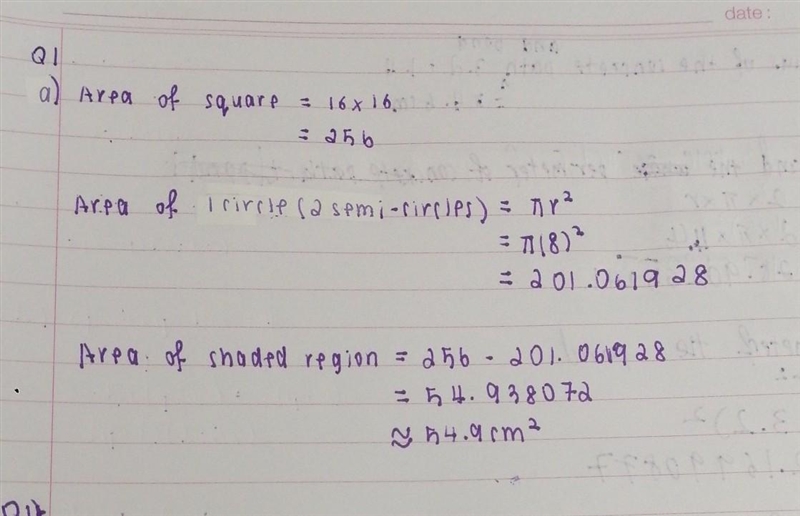 date:
Q1
a) Area of square = 16 x 16
= 256
Area of 1 circle (2 semi-circles) = πr²
= π(8)²
= 201.061928
Area of shaded region = 256 - 201.061928
= 54.938072
≈ 54.9cm²